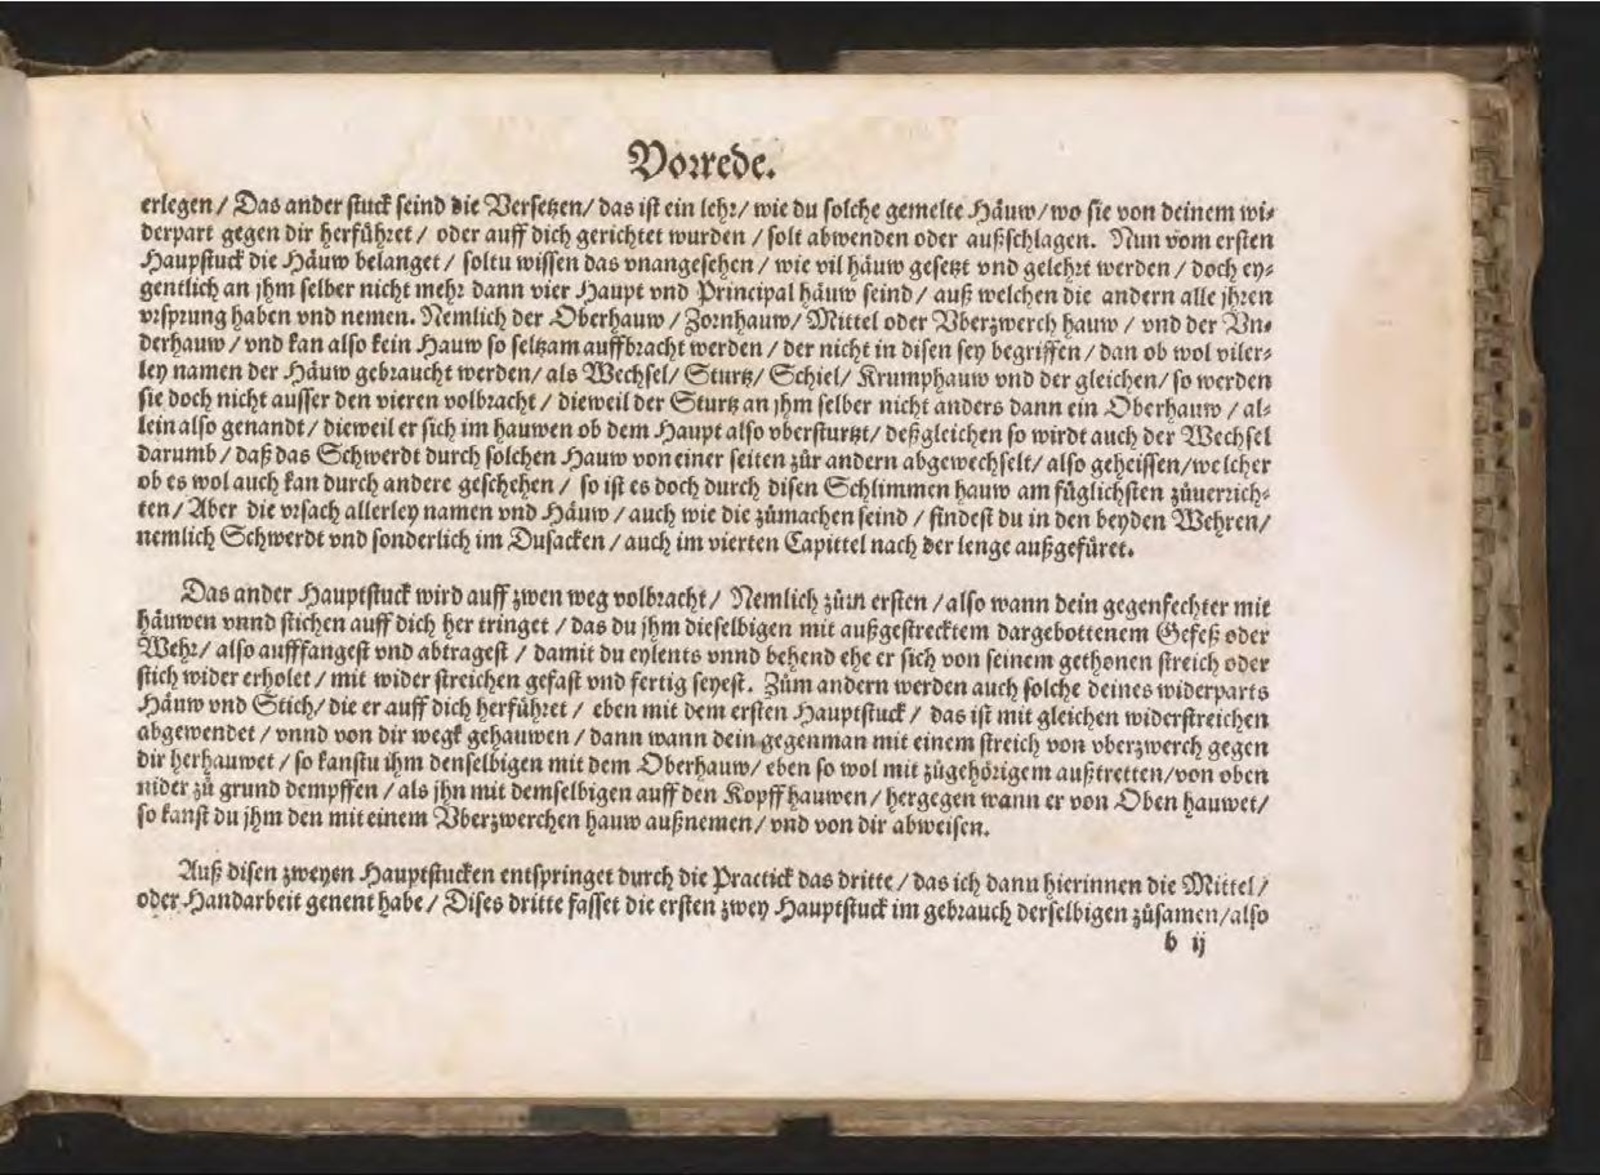 Vorrede.
erlegen / Das ander stuck seind die Versetzen / das ist ein lehr / wie du solche gemelte Häuw / wo sie von deinem wi⸗
derpart gegen dir herführet / oder auff dich gerichtet wurden / solt abwenden oder außschlagen. Nun vom ersten
Haupstuck die Häuw belanget / soltu wissen das vnangesehen / wie vil häuw gesetzt vnd gelehrt werden / doch ey⸗
gentlich an jhm selber nicht mehr dann vier Haupt vnd Principal häuw seind / auß welchen die andern alle jhren
vrsprung haben vnd nemen. Nemlich der Oberhauw / Zornhauw / Mittel oder Vberzwerch hauw / vnd der Vn⸗
derhauw / vnd kan also kein Hauw so seltzam auffbracht werden / der nicht in disen sey begriffen / dan ob wol viler⸗
ley namen der Häuw gebraucht werden / als Wechsel / Sturtz / Schiel / Krumphauw vnd der gleichen / so werden
sie doch nicht ausser den vieren volbracht / dieweil der Sturtz an jhm selber nicht anders dann ein Oberhauw / al⸗
lein also genandt / dieweil er sich im hauwen ob dem Haupt also vbersturtzt / deßgleichen so wirdt auch der Wechsel
darumb / daß das Schwerdt durch solchen Hauw von einer seiten zůr andern abgewechselt / also geheissen / welcher
ob es wol auch kan durch andere geschehen / so ist es doch durch disen Schlimmen hauw am füglichsten zůuerrich⸗
ten / Aber die vrsach allerley namen vnd Häuw / auch wie die zůmachen seind / findest du in den beyden Wehren /
nemlich Schwerdt vnd sonderlich im Dusacken / auch im vierten Capittel nach der lenge außgefüret.
Das ander Hauptstuck wird auff zwen weg volbracht / Nemlich zům ersten / also wann dein gegenfechter mit
häuwen vnnd stichen auff dich her tringet / das du jhm dieselbigen mit außgestrecktem dargebottenem Gefeß oder
Wehr / also aufffangest vnd abtragest / damit du eylents vnnd behend ehe er sich von seinem gethonen streich oder
stich wider erholet / mit wider streichen gefast vnd fertig seyest. Zům andern werden auch solche deines widerparts
Häuw vnd Stich / die er auff dich herführet / eben mit dem ersten Hauptstuck / das ist mit gleichen widerstreichen
abgewendet / vnnd von dir wegk gehauwen / dann wann dein gegenman mit einem streich von vberzwerch gegen
dir herhauwet / so kanstu ihm denselbigen mit dem Oberhauw / eben so wol mit zůgehörigem außtretten / von oben
nider zů grund dempffen / als jhn mit demselbigen auff den Kopff hauwen / hergegen wann er von Oben hauwet /
so kanst du jhm den mit einem Vberzwerchen hauw außnemen / vnd von dir abweisen.
Auß disen zweyen Hauptstucken entspringet durch die Practick das dritte / das ich dann hierinnen die Mittel /
oder Handarbeit genent habe / Dises dritte fasset die ersten zwey Hauptstuck im gebrauch derselbigen zůsamen / also
b ij